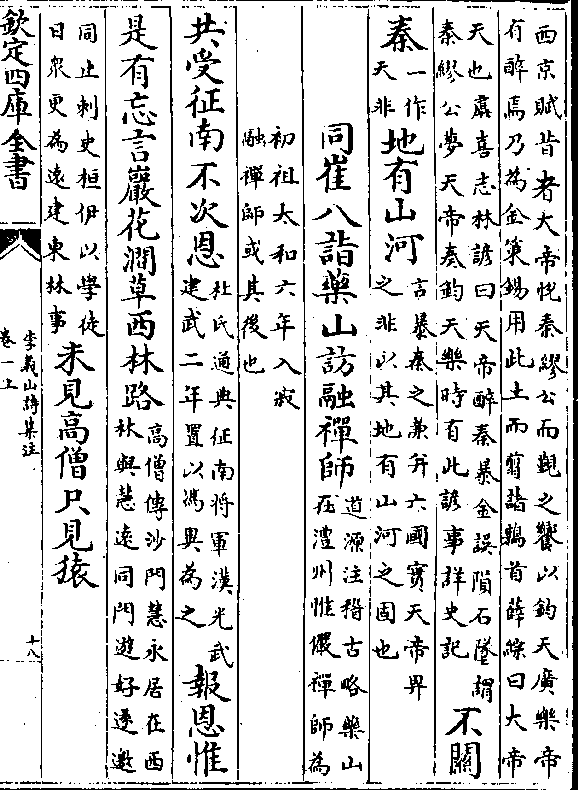 西京賦昔者大帝恱秦繆公而覿之饗以鈞天廣樂帝
有醉焉乃為金策錫用此土而翦諸鶉首薛綜曰大帝
天也虞喜志林諺曰天帝醉秦暴金誤隕石墜謂
秦繆公夢天帝奏鈞天樂時有此諺事詳史記
不關
秦
一作
天非
地有山河
言暴秦之兼并六國實天帝畀
之非以其地有山河之固也
同崔八詣藥山訪融禪師
道源注稽古略藥山
在澧州惟儼禪師為
初祖太和六年入寂
融禪師或其後也
共受征南不次恩
杜氏通典征南將軍漢光武
建武二年置以馮異為之
報恩惟
是有忘言巖花澗草西林路
高僧傳沙門慧永居在西
林與慧遠同門遊好遂邀
同止刺史桓伊以學徒
日衆更為遠建東林事
未見高僧只見猿
欽定四庫全書
李義山詩集注
卷一上
十八